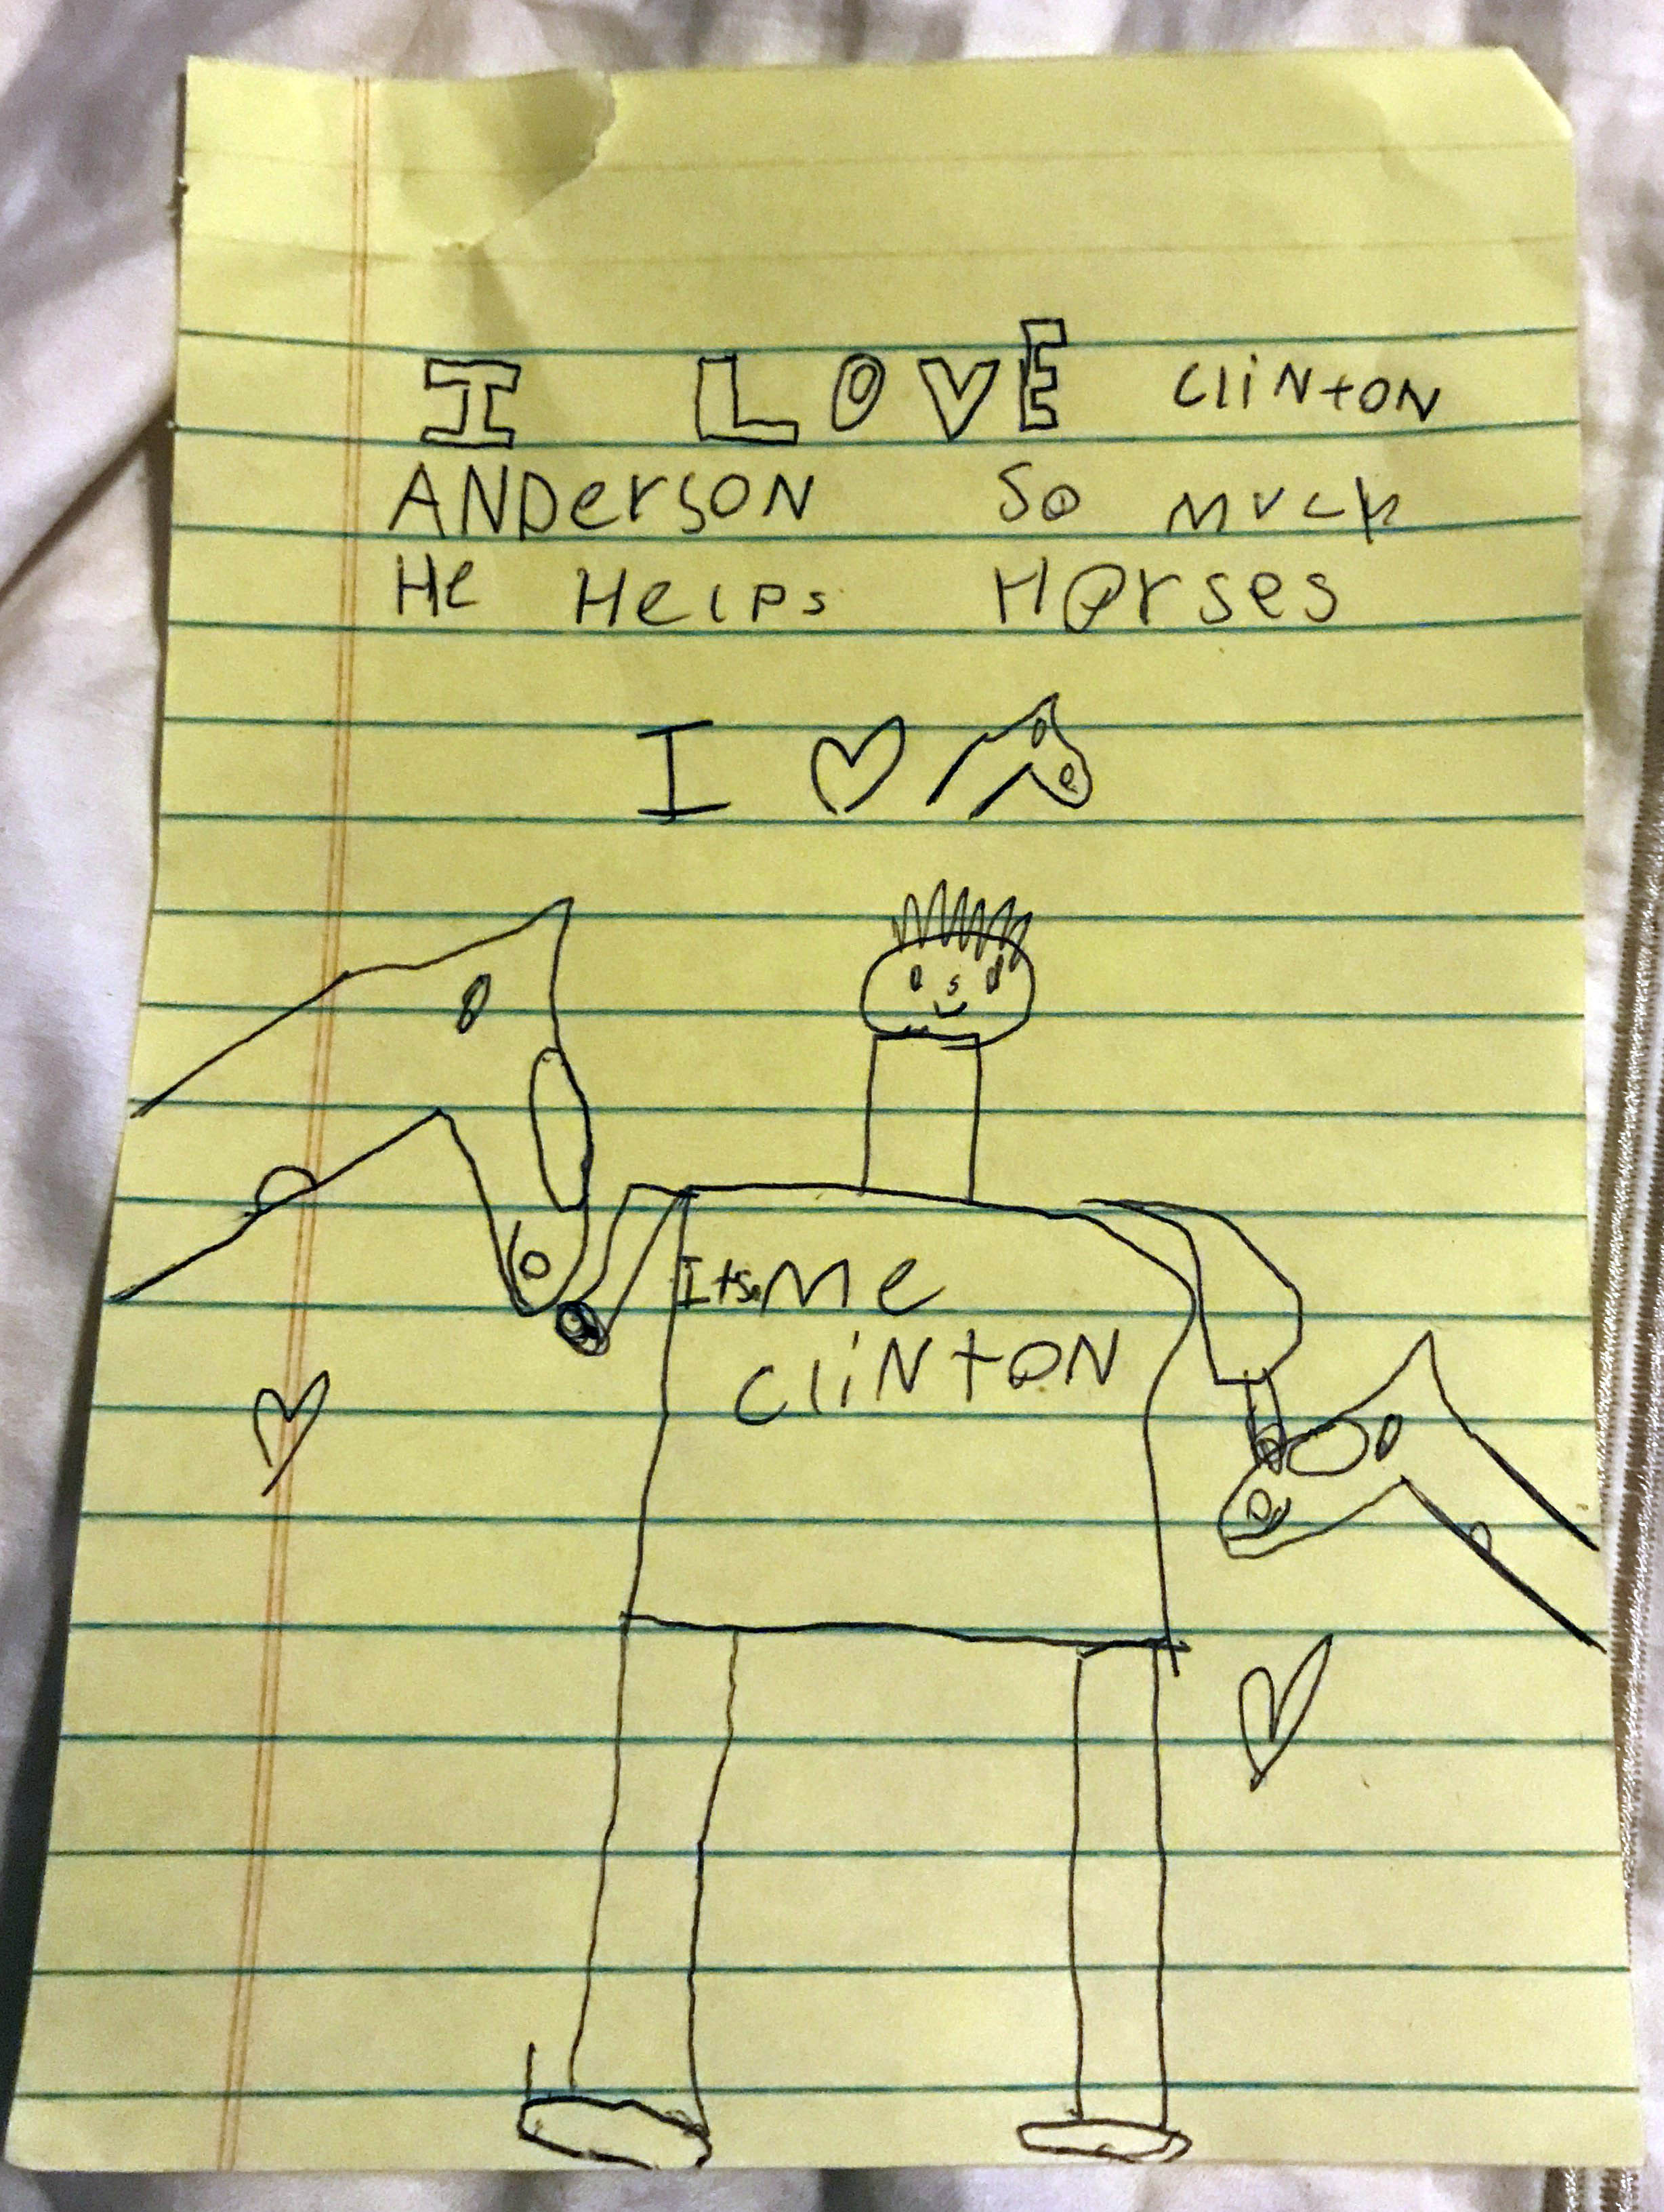 I LOVE CliNtoN
ANDersoN So mucH
He Helps Horses
I
Its Me
CliNtoN